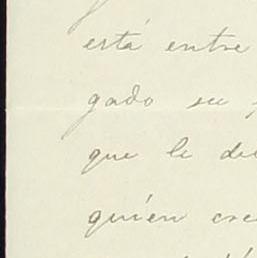 está entre
gado su
que le de
quien cre